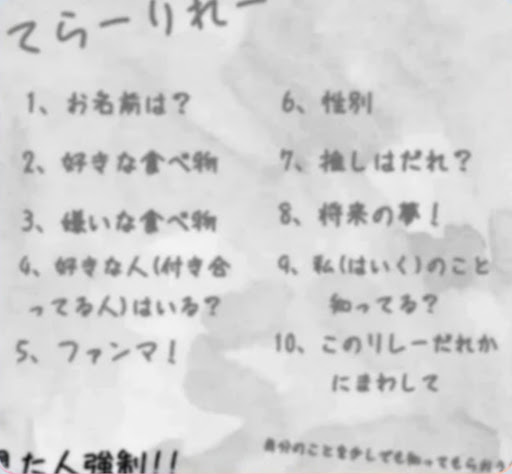 てらーりれー
1、お名前は？
2、好きな食べ物
3、嫌いな食べ物
4、好きな人(付き合
ってる人)はいる？
5、ファンマ！
6、性別
7、推しはだれ？
8、将来の夢！
9、私(はいく)のこと
知ってる？
10、このリレーだれか
にまわして
た人強制!!
自分のことを少しでも知ってもらおう